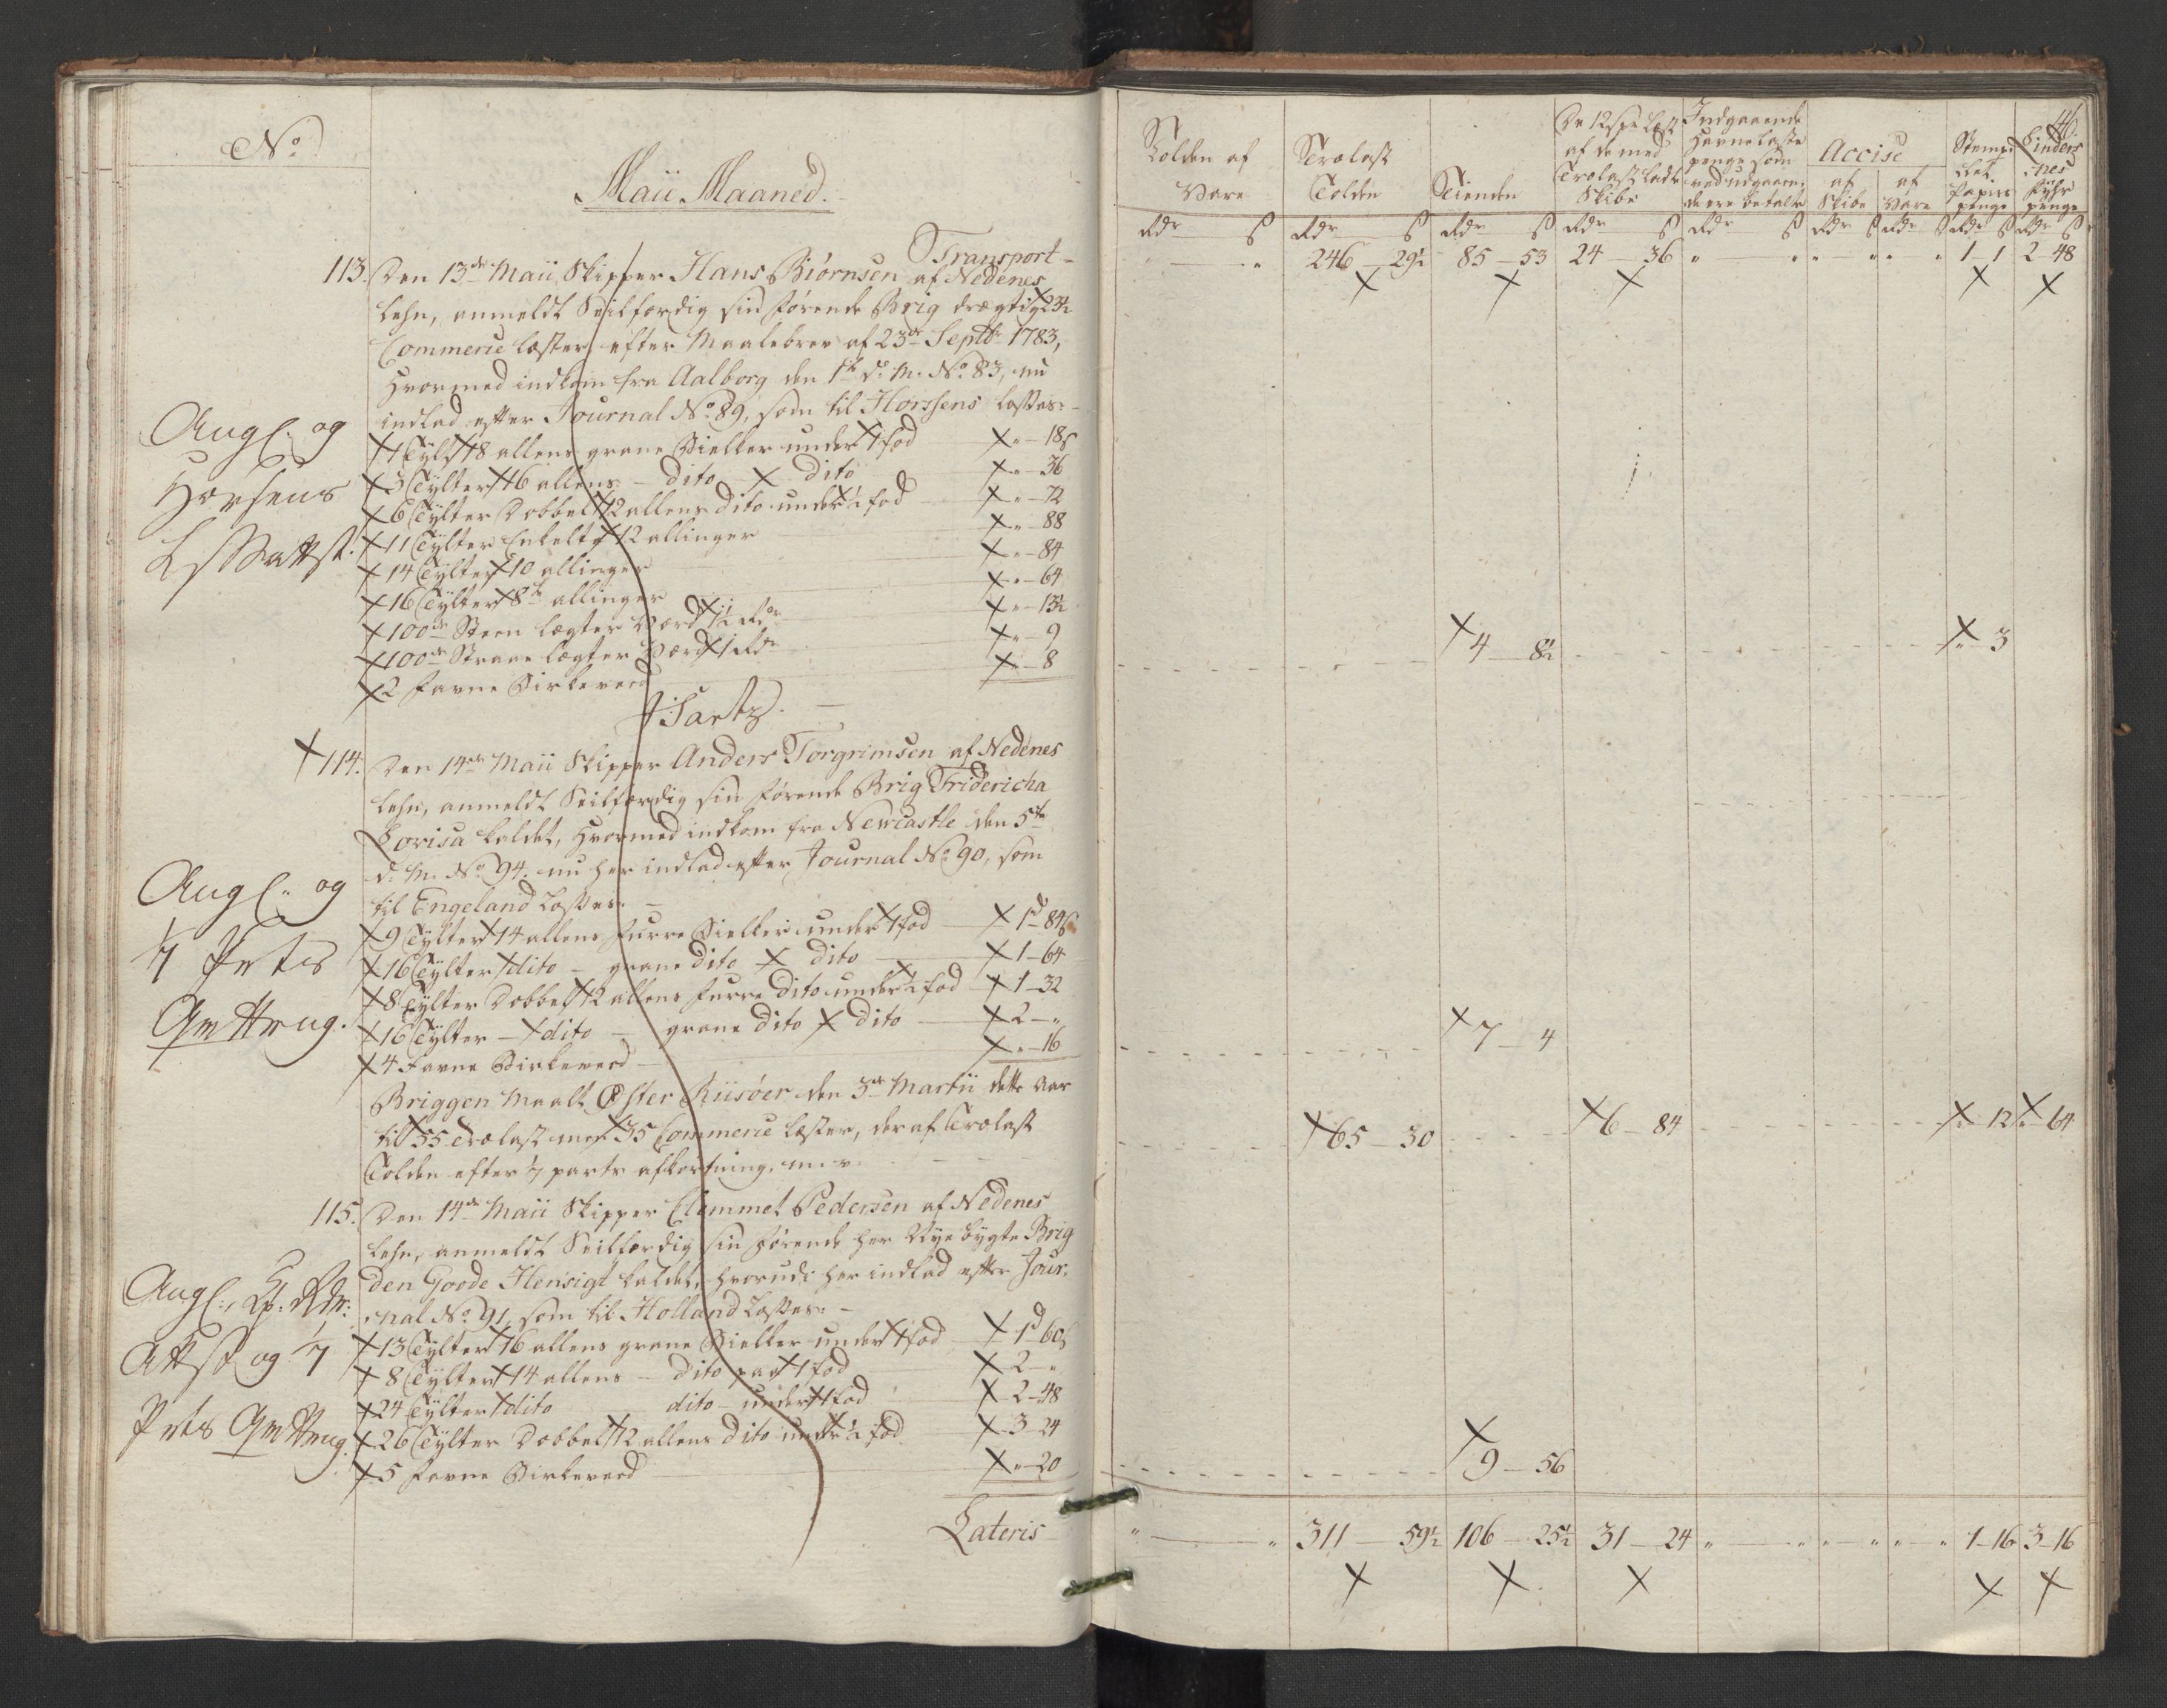 No
Maii Maaned.
Transport
113. Den 13de Maii Skipper Hans Biørnsen af Nedenes
Lehn, anmeldt Seilfærdig sin førende Brig drægtig 23½
Commerce læster efter Maalebrev af 23de Septbr 1783,
hvormed indkom fra Aalborg den 1te d. M. No. 83, nu
indlad efter Journal No. 89, som til Horssens lostes:
Angl. og
Horsens
1 Tylt 18 allens grane Bielker under 1 fod " - 18 s
3 Tylter 16 allens - dito dito " - 36
6 Tylter Dobbelt 12 allens dito under ½ fod " - 72
11 Tylter Enkelt 12 allinger " - 88
14 Tylter 10 allinger " - 84
16 Tylter 8te allinger " - 64
100de Steen lægter Værd 1½ Rdr " - 13½
100de Straae lægter Værd 1 Rdr " - 9
2 Favne Birkeved " - 8
114. Den 14de Maii Skipper Anders Torgrimsen af Nedenes
Lehn, anmeldt Seilfærdig sin førende Brig Fridericha
Lovisa kaldet, hvormed indkom fra Newcastle den 5te
d. M. No. 94. nu her indlad efter Journal No. 90, som
til Engeland lostes:
Angl. og
1/7 Prts
9 Tylter 14 allens furre Bielker under 1 fod 1 d 84 s
16 Tylter dito - grane dito dito 1 - 64
8 Tylter Dobbelt 12 allens furre dito under ½ fod 1 - 32
16 Tylter - dito - grane dito dito 2 - "
4 Favne Birkeved " - 16
Briggen Maalt Øster Riisøer den 3de Martii dette Aar
til 55 Trælast men 35 Commerce læster, deraf Trælast
Tolden efter 1/7 parts afkortning, m. v.
115. Den 14de Maii Skipper Clemmet Pedersen af Nedenes
Lehn, anmeldt Seilfærdig sin førende her Nye bygte Brig
den Goode Hensigt kaldet, hvorudi her indlad efter Jour-
nal No. 91, som til Holland lostes:
Angl.,
og 1/7
Prts
13 Tylter 16 allens grane Bielker under 1 fod 1 d 60 s
8 Tylter 14 allens - dito paa 1 fod 2 - "
24 Tylter dito dito - under 1 fod 2 - 48
26 Tylter Dobbelt 12 allens dito under ½ fod 3 - 24
5 Favne Birkeved " - 20
Lateris
46
Tolden af Vare
Trælast Tolden
Tienden
De 12 s pr Læst af de med Trælast ladte Skibe
Indgaaende Havne laste penge som ved udgaaen- de ere betalte
Accise
af Skibe
af Vare
Stemp- let Papiirs penge
Linders- nes Fyhr penge
Rdr s Rdr s Rdr s Rdr s Rdr s Rdr s Rdr s Rdr s Rdr s
" - " 246 - 29½ 85 - 53 24 - 36 " " " " " " 1 - 1 2 - 48
4 - 8½ " - 3
7 - 4
65 - 30 6 - 84 " - 12 " - 64
9 - 56
" - " 311 - 59½ 106 - 25½ 31 - 24 " - " " - " " - " 1 - 16 3 - 16